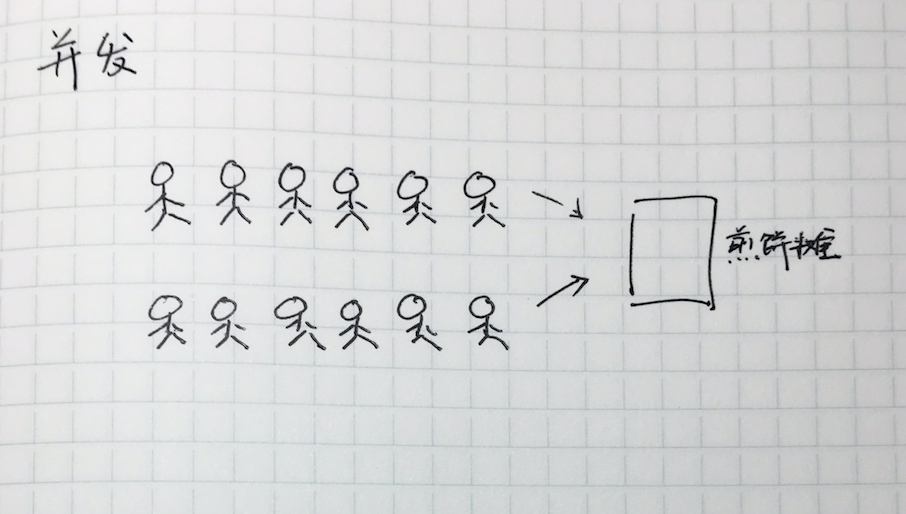 并发
煎饼摊